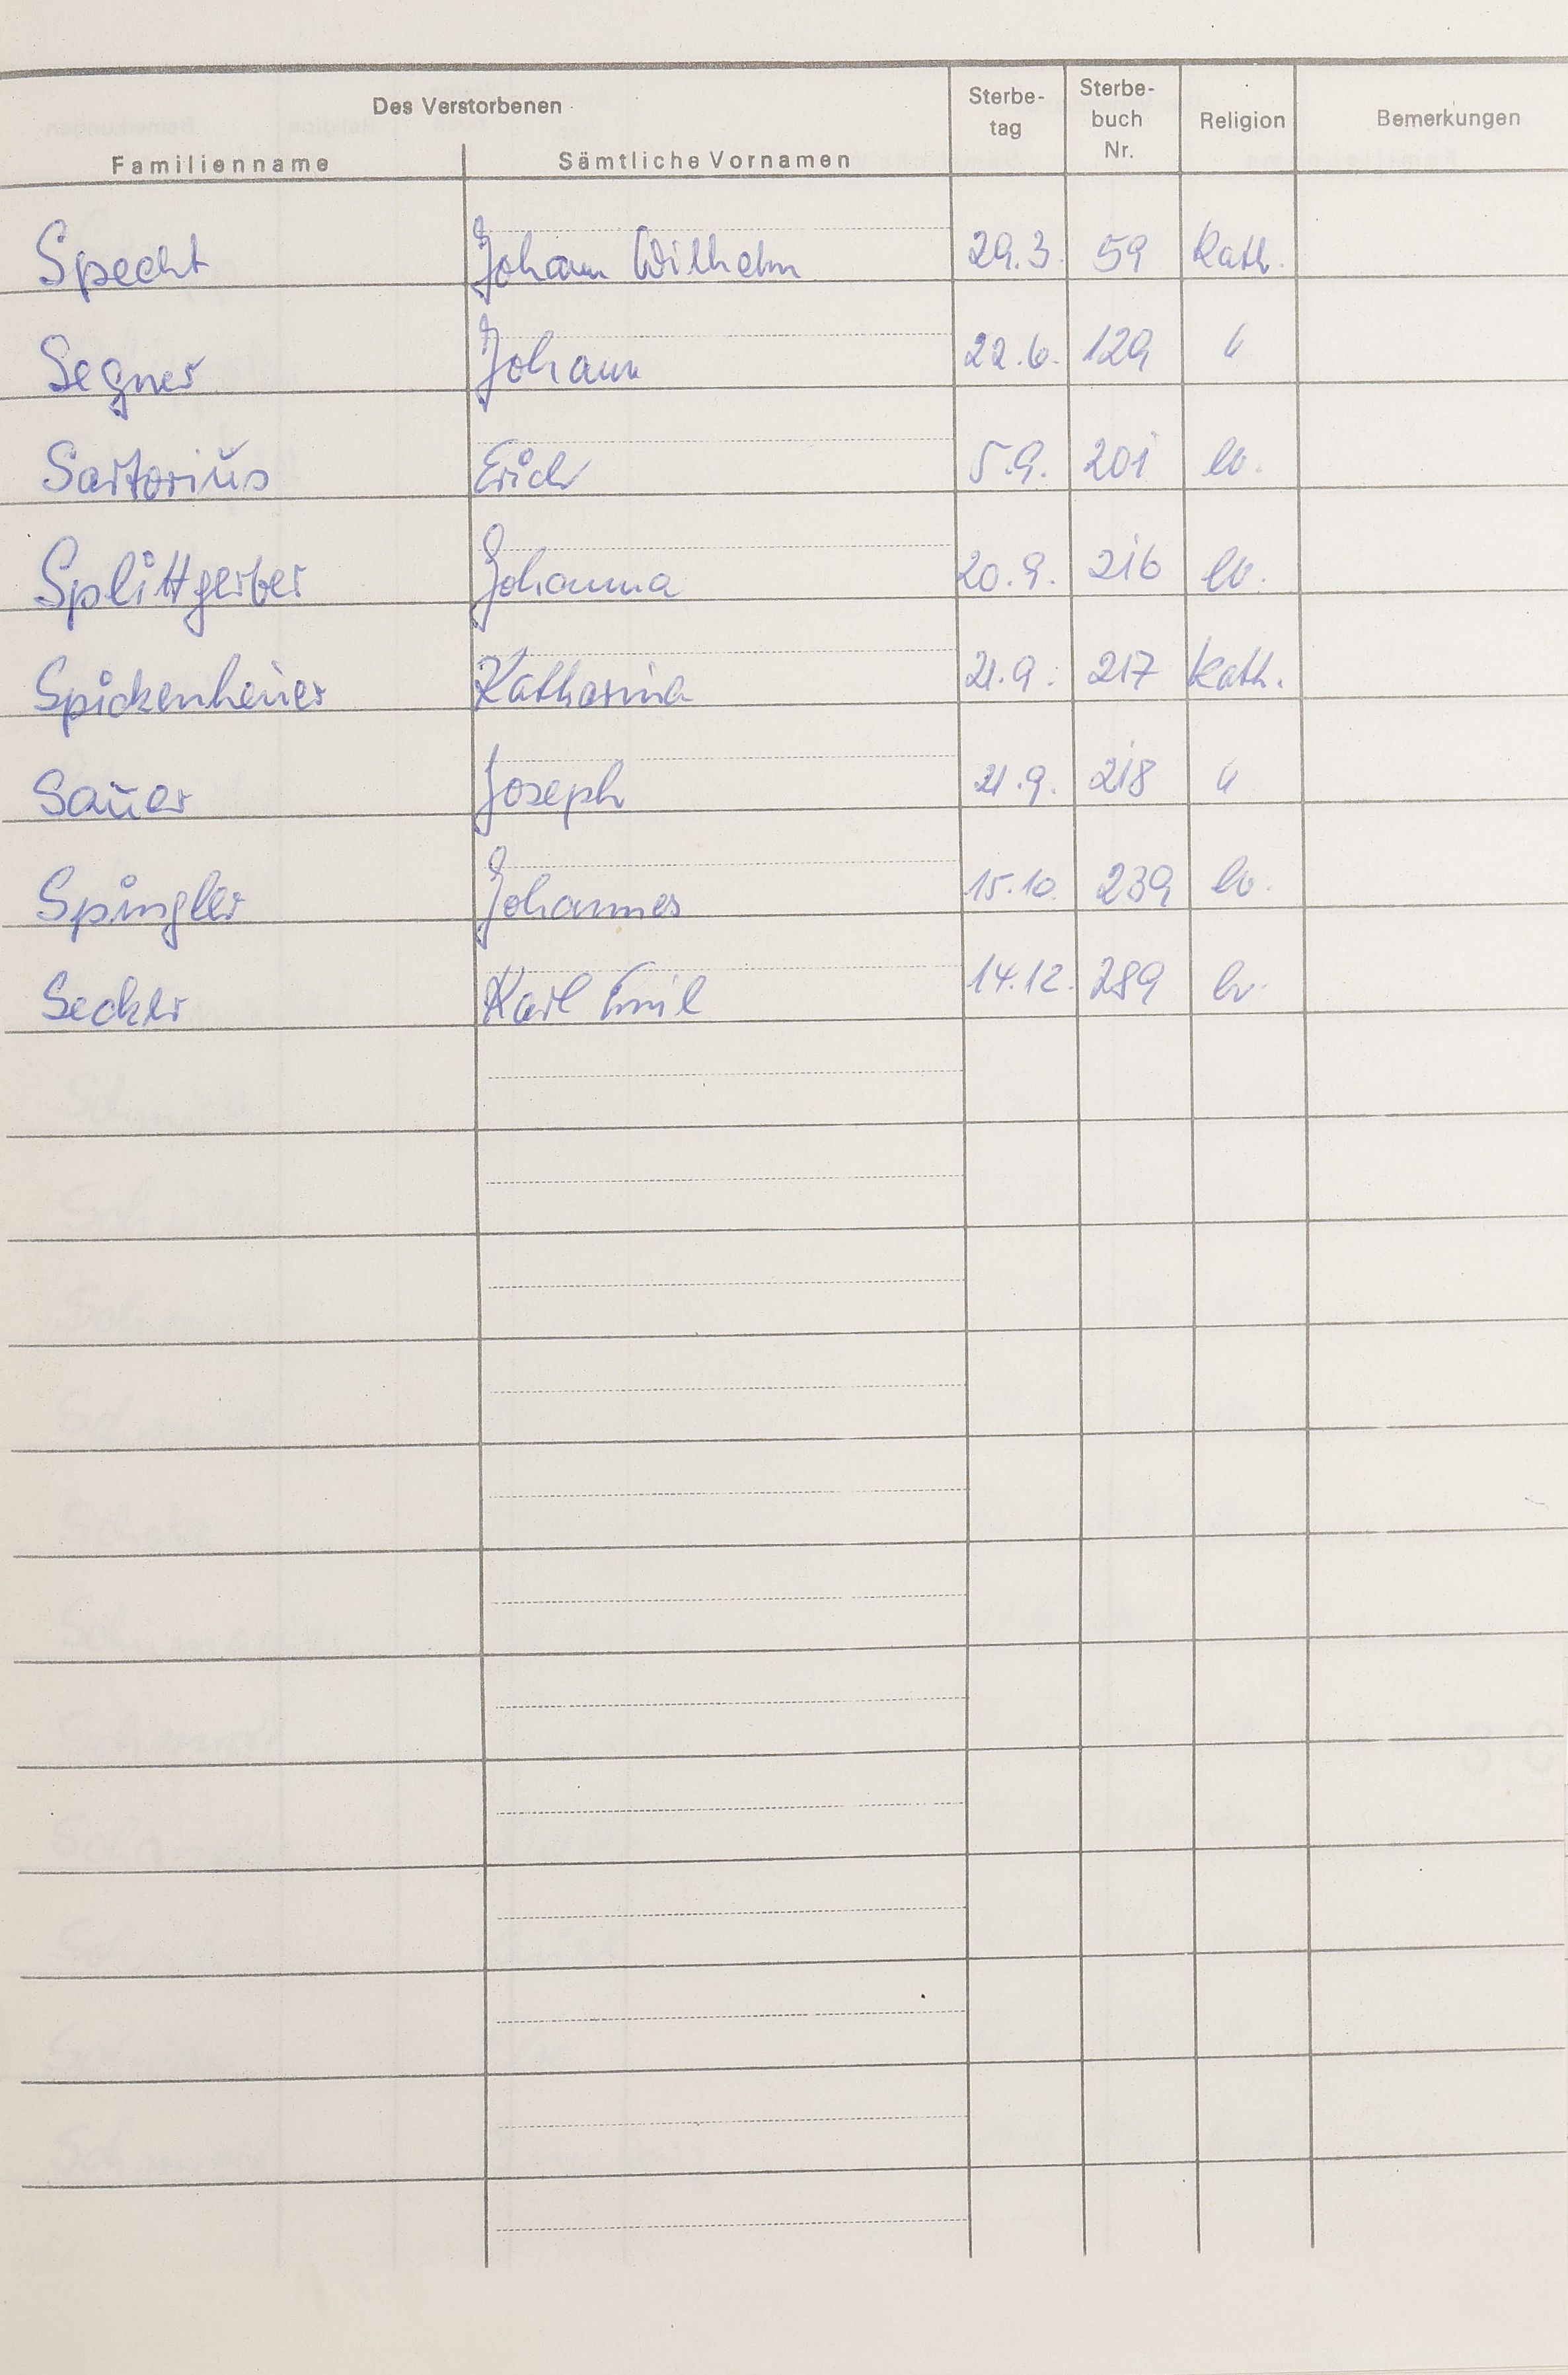 Des Verstorbenen
Familienname Sämtliche Vornamen Sterbe-tag Sterbe-buch Nr. Religion Bemerkungen
Specht Johann Wilhelm 29.3. 59 Kath.
Segner Johann 22.6. 129 "
Sartorius Erich 5.9. 201 ev.
Splittgerber Johanna 20.9. 216 ev.
Spickenheuer Katharina 21.9. 217 Kath.
Sauer Joseph 21.9. 218 "
Spingler Johannes 15.10. 239 ev.
Seckler Karl Emil 14.12. 289 ev.